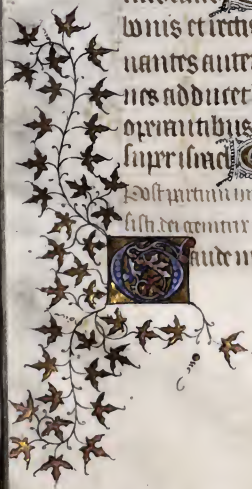 bonis et rectis
uantes autem
nes adducet
operantibus
super israel
Post partum
sisti dei genitrix
Gaude